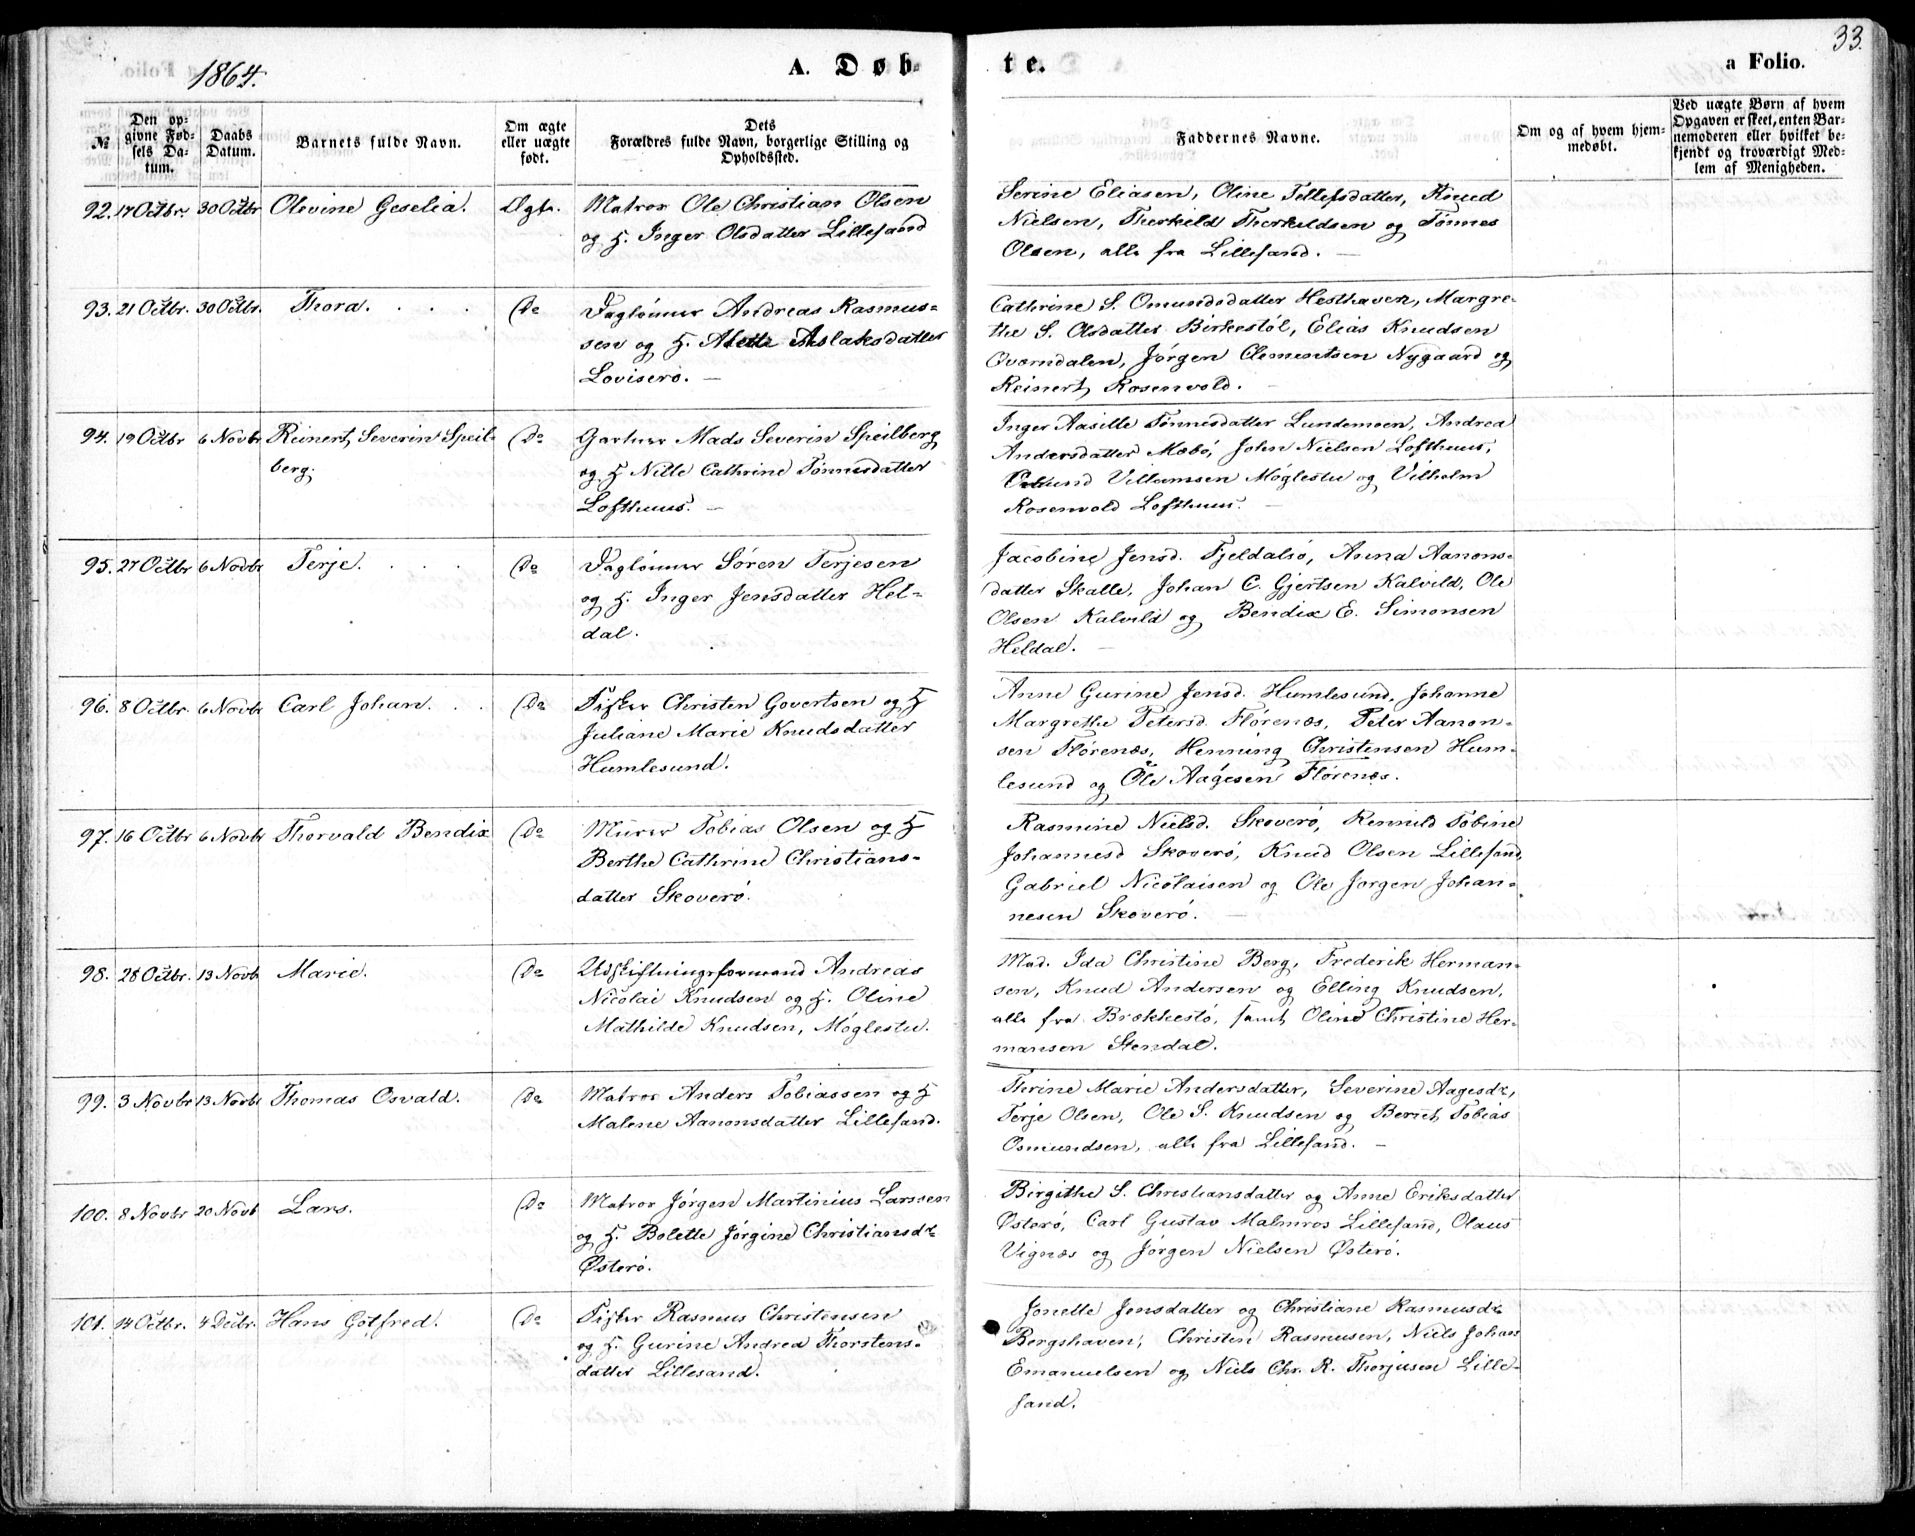 1864.
A. Døbte.
a Folio.
33.
№
Den opgivne Fødsels Datum.
Daabs Datum.
Barnets fulde Navn.
Om ægte eller uægte født.
Dets Forældres fulde Navn, borgerlige Stilling og Opholdssted.
Faddernes Navne.
Om og af hvem hjemmedøbt.
Ved uægte Børn af hvem Opgaven er skeet, enten Barnemoderen eller hvilket bekjendt og troværdigt Medlem af Menigheden.
92. 17 Octbr. 30 Octbr Olevine Geselia. Ægte. Matros Ole Christian Olsen
og H. Inger Olsdatter Lillesand
Serine Eliasen, Oline Tellefsdatter, Knud
Nielsen, Therkild Therkildsen og Tønnes
Olsen, alle fra Lillesand. —
93. 21 Octbr. 30 Octbr. Thora. . . . Do Daglønner Andreas Rasmus-
sen og H. Alette Aslaksdatter
Loviserø. —
Cathrine S. Omundsdatter Hesthaven, Margre-
the S. Olsdatter Birkestøl, Elias Knudsen
Qværndalen, Jørgen Clementsen Nygaard og
Reinert Rosenvold. —
94. 19 Octbr 6 Novbr Reinert Severin Speil-
berg.
Do Gartner Mads Severin Speilberg
og H Nille Cathrine Tønnesdatter
Lofthuus. —
Inger Aasille Tønnesdatter Lundemoen, Andrea
Andersdatter Mæbø, John Nielsen Lofthuus,
Villumsen Møglestu og Vilhelm
Rosenvold Lofthuus. —
95. 27 Octbr 6 Novbr Terje. . . . Do Daglønner Søren Terjesen
og H. Inger Jensdatter Hel-
dal.
Jacobine Jensd. Fjeldalsø, Anna Aanons-
datter Skalle, Johan C. Gjertsen Kalvild, Ole
Olsen Kalvild og Bendix E. Simonsen
Heldal. —
96. 8 Octbr. 6 Novbr Carl Johan. . . Do Fisker Christen Govertsen og H
Juliane Marie Knudsdatter
Humlesund.
Anne Gurine Jensd. Humlesund, Johanne
Margrethe Petersd. Flørenæs, Peter Aanon-
sen Flørenæs, Henning Christensen Hum-
lesund og Ole Aagesen Flørenæs.
97. 16 Octbr 6 Novbr Thorvald Bendix Do Murer Tobias Olsen og H
Berthe Cathrine Christians-
datter Skoverø.
Rasmine Nielsd. Skoverø, Rennild Tobine
Johannesd Skoverø, Knud Olsen Lillesand,
Gabriel Nicolaisen og Ole Jørgen Johan-
nesen Skoverø. —
98. 28 Octbr. 13 Novb Marie. Do Udskiftningsformand Andreas
Nicolai Knudsen og H. Oline
Mathilde Knudsen, Møglestu.
Mad. Ida Christine Berg, Frederik Herman-
sen, Knud Andersen og Elling Knudsen,
alle fra Brækkestø, samt Oline Christine Her-
mansen Stendal.
99. 3 Novbr 13 Novbr Thomas Osvald. Do Matros Anders Tobiassen og H
Malene Aanonsdatter Lillesand.
Thrine Marie Andersdatter, Severine Aagesdr,
Terje Olsen, Ole S. Knudsen og Berret Tobias
Osmundsen, alle fra Lillesand. —
100. 8 Novbr 20 Novb Lars. Do Matros Jørgen Martinius Larssen
og H. Bolette Jørgine Christiansdr
Østerø.
Birgithe S. Christiansdatter og Anne Eriksdatter
Østerø, Carl Gustav Malmros Lillesand, Olaus
Vignæs og Jørgen Nielsen Østerø.
101. 14 Octbr. 4 Decbr. Hans Gotfred. Do Fisker Rasmus Christensen
og H. Gurine Andrea Thorstens-
datter Lillesand.
Jonette Jensdatter og Christiane Rasmusdr
Bergshaven, Christen Rasmusen, Niels Johan
Emanuelsen og Niels Chr. R. Thorjusen Lille-
sand.